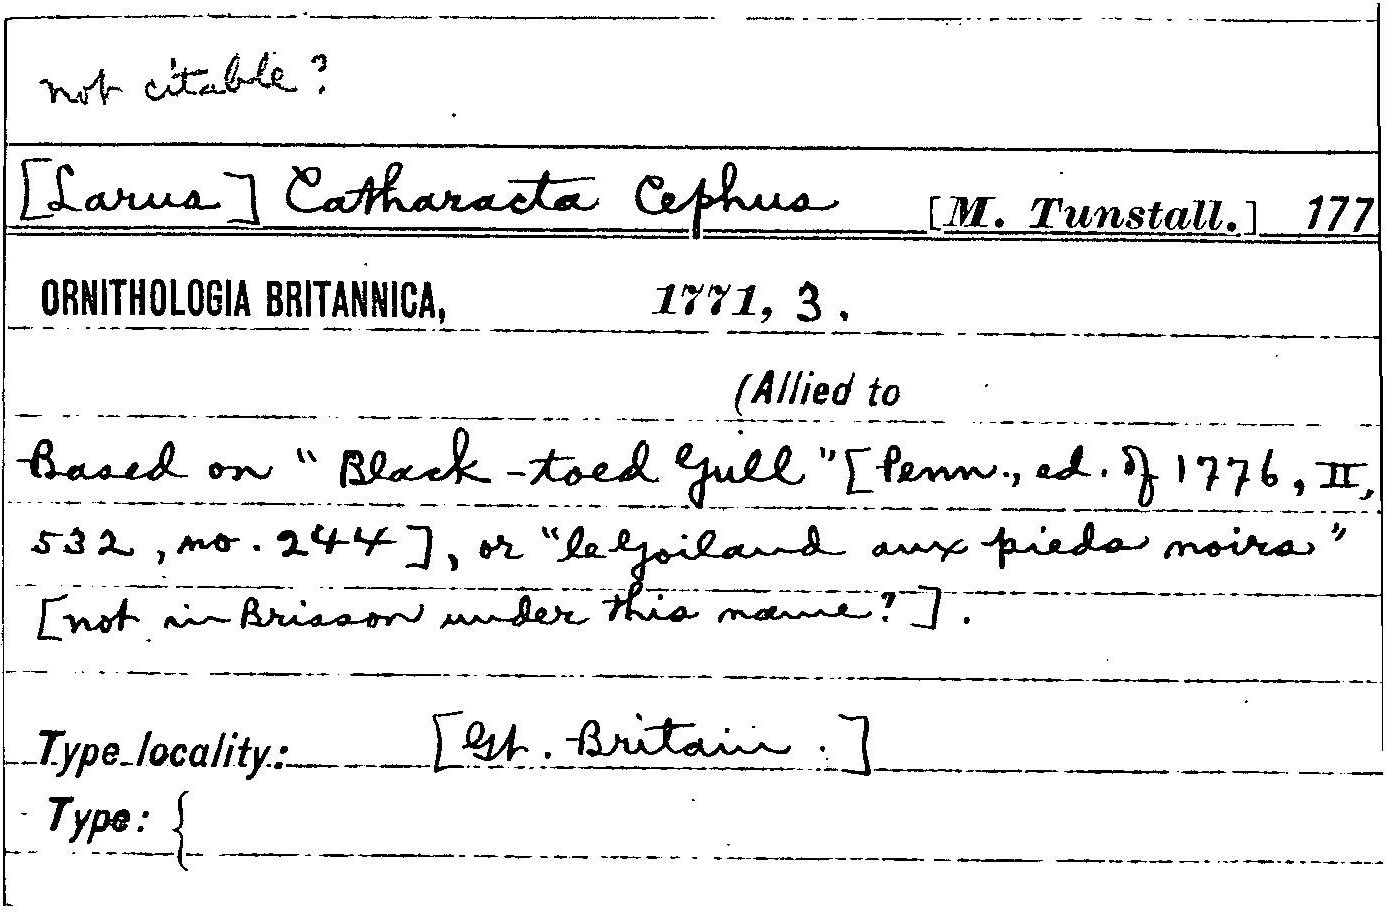 not citable?
[Larus] Catharacta Cephus [M. Tunstall.] 177
ORNITHOLOGIA BRITANNICA, 1771, 3.
(Allied to
Based on "Black-toed Gull" [Penn., ed. of 1776, II,
532, no. 244], or "le Goiland aux pieds noirs"
[not in Brisson under this name?].
Type locality: [Gt. Britain.]
Type: {